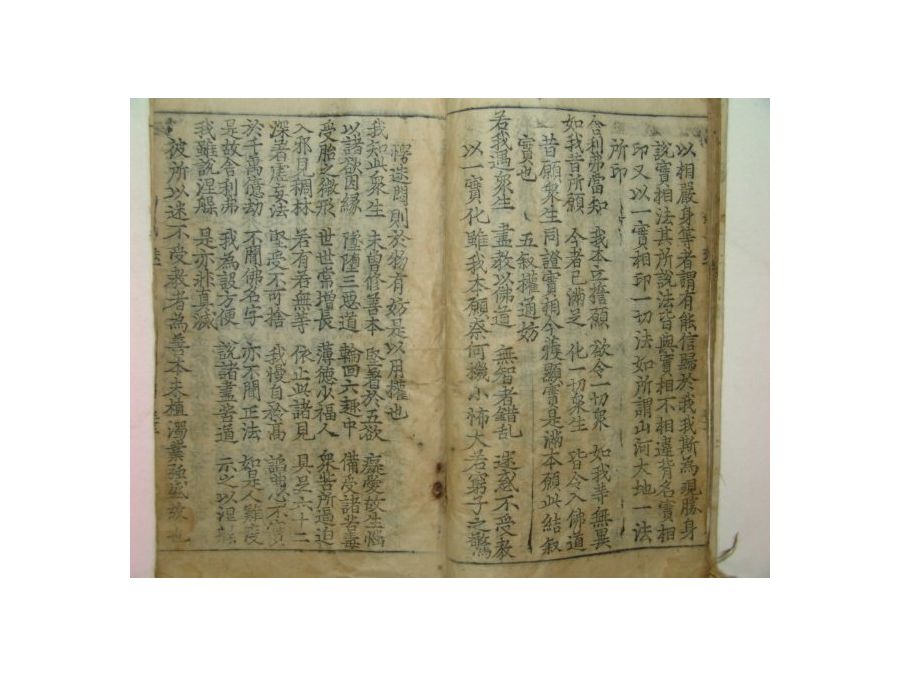 以相嚴身等者謂有能信歸於我我斯為現勝身
說實相法其所說法皆與實相不相違背名實相
印又以一實相印一切法如所謂山河大地一法
所印
舍利弗當知 我本立誓願 欲令一切眾 如我等無異
如我昔所願 今者已滿足 化一切眾生 皆令入佛道
昔願眾生同證實相今獲顯實是滿本願此結叙
實也 五叙權適妨
若我遇眾生 盡教以佛道 無智者錯乱 迷惑不受教
以一實化雖我本願奈何機小怖大若窮子之驚
愕迷悶則於物有妨是以用權也
我知此眾生 未曾修善本 堅著於五欲 癡愛故生惱
以諸欲因緣 墜墮三惡道 輪回六趣中 備受諸苦毒
受胎之微形 世世常增長 薄德少福人 眾苦所逼迫
入邪見稠林 若有若無等 依止此諸見 具足六十二
深著虛妄法 堅受不可捨 我慢自矜高 諂曲心不實
於千萬億劫 不聞佛名字 亦不聞正法 如是人難度
是故舍利弗 我為設方便 說諸盡苦道 示之以涅槃
我雖說涅槃 是亦非真滅
彼所以迷不受教者為善本未植濁業強盛故也